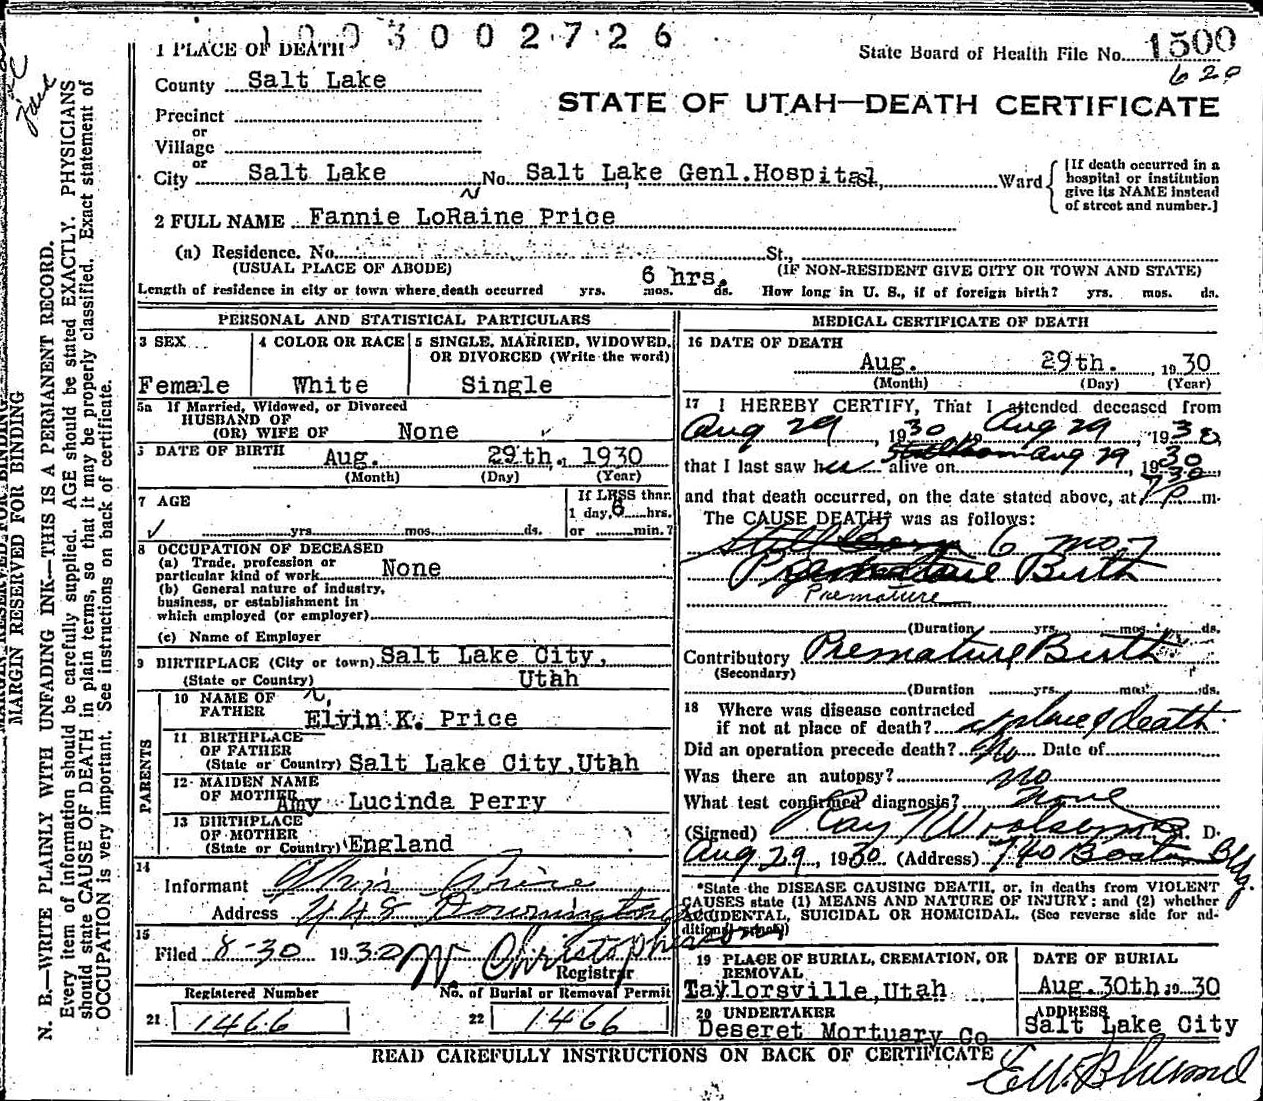 1003002726
1 PLACE OF DEATH
State Board of Health File No. 1500
620
County Salt Lake
STATE OF UTAH—DEATH CERTIFICATE
Precinct
or
Village
or
City Salt Lake No. Salt Lake Genl.Hospital, Ward
[If death occurred in a hospital or institution give its NAME instead of street and number.]
2 FULL NAME Fannie LoRaine Price
(a) Residence. No. St.,
(USUAL PLACE OF ABODE) (IF NON-RESIDENT GIVE CITY OR TOWN AND STATE)
6 hrs.
Length of residence in city or town where death occurred yrs. mos. ds. How long in U. S., if of foreign birth? yrs. mos. ds.
PERSONAL AND STATISTICAL PARTICULARS
3 SEX 4 COLOR OR RACE 5 SINGLE, MARRIED, WIDOWED,
OR DIVORCED (Write the word)
Female White Single
5a If Married, Widowed, or Divorced
HUSBAND OF
(OR) WIFE OF None
DATE OF BIRTH Aug. 29th., 1930
(Month) (Day) (Year)
7 AGE If LESS than
1 day, 6 hrs.
yrs. mos. ds. or min.?
8 OCCUPATION OF DECEASED
(a) Trade, profession or
particular kind of work None
(b) General nature of industry,
business, or establishment in
which employed (or employer)
(c) Name of Employer
9 BIRTHPLACE (City or town) Salt Lake City,
(State or Country) Utah
PARENTS
10 NAME OF
FATHER Elvin K. Price
11 BIRTHPLACE
OF FATHER
(State or Country) Salt Lake City,Utah
12 MAIDEN NAME
OF MOTHER Amy Lucinda Perry
13 BIRTHPLACE
OF MOTHER
(State or Country) England
14
Informant Price
Address 448 Downington
15
Filed 8-30 1930 W Christopherson
Registrar
Registered Number No. of Burial or Removal Permit
21 1466 22 1466
MEDICAL CERTIFICATE OF DEATH
16 DATE OF DEATH
Aug. 29th. 1930
(Month) (Day) (Year)
17 I HEREBY CERTIFY, That I attended deceased from
Aug 29, 1930 to Aug 29, 1930,
that I last saw her alive on Stillborn Aug 29, 1930,
and that death occurred, on the date stated above, at 730 P m.
The CAUSE DEATH* was as follows:
Still Born 6 mo
Premature Birth
Premature
(Duration yrs. mos. ds.
Contributory Premature Birth
(Secondary)
(Duration yrs. mos. ds.
18 Where was disease contracted
if not at place of death? at place of death
Did an operation precede death? No Date of
Was there an autopsy? no
What test confirmed diagnosis? None
(Signed) Ray Woolsey M. D.
Aug 29, 1930 (Address) 740 Boston Bldg.
*State the DISEASE CAUSING DEATH, or, in deaths from VIOLENT
CAUSES state (1) MEANS AND NATURE OF INJURY; and (2) whether
ACCIDENTAL, SUICIDAL OR HOMICIDAL. (See reverse side for ad-
19 PLACE OF BURIAL, CREMATION, OR
REMOVAL
Taylorsville,Utah
DATE OF BURIAL
Aug.30th.1930
20 UNDERTAKER
Deseret Mortuary Co
ADDRESS
Salt Lake City
READ CAREFULLY INSTRUCTIONS ON BACK OF CERTIFICATE
MARGIN RESERVED FOR BINDING
MARGIN RESERVED FOR BINDING
N. B.—WRITE PLAINLY WITH UNFADING INK—THIS IS A PERMANENT RECORD.
Every item of information should be carefully supplied. AGE should be stated EXACTLY. PHYSICIANS
should state CAUSE OF DEATH in plain terms, so that it may be properly classified. Exact statement of
OCCUPATION is very important. See instructions on back of certificate.